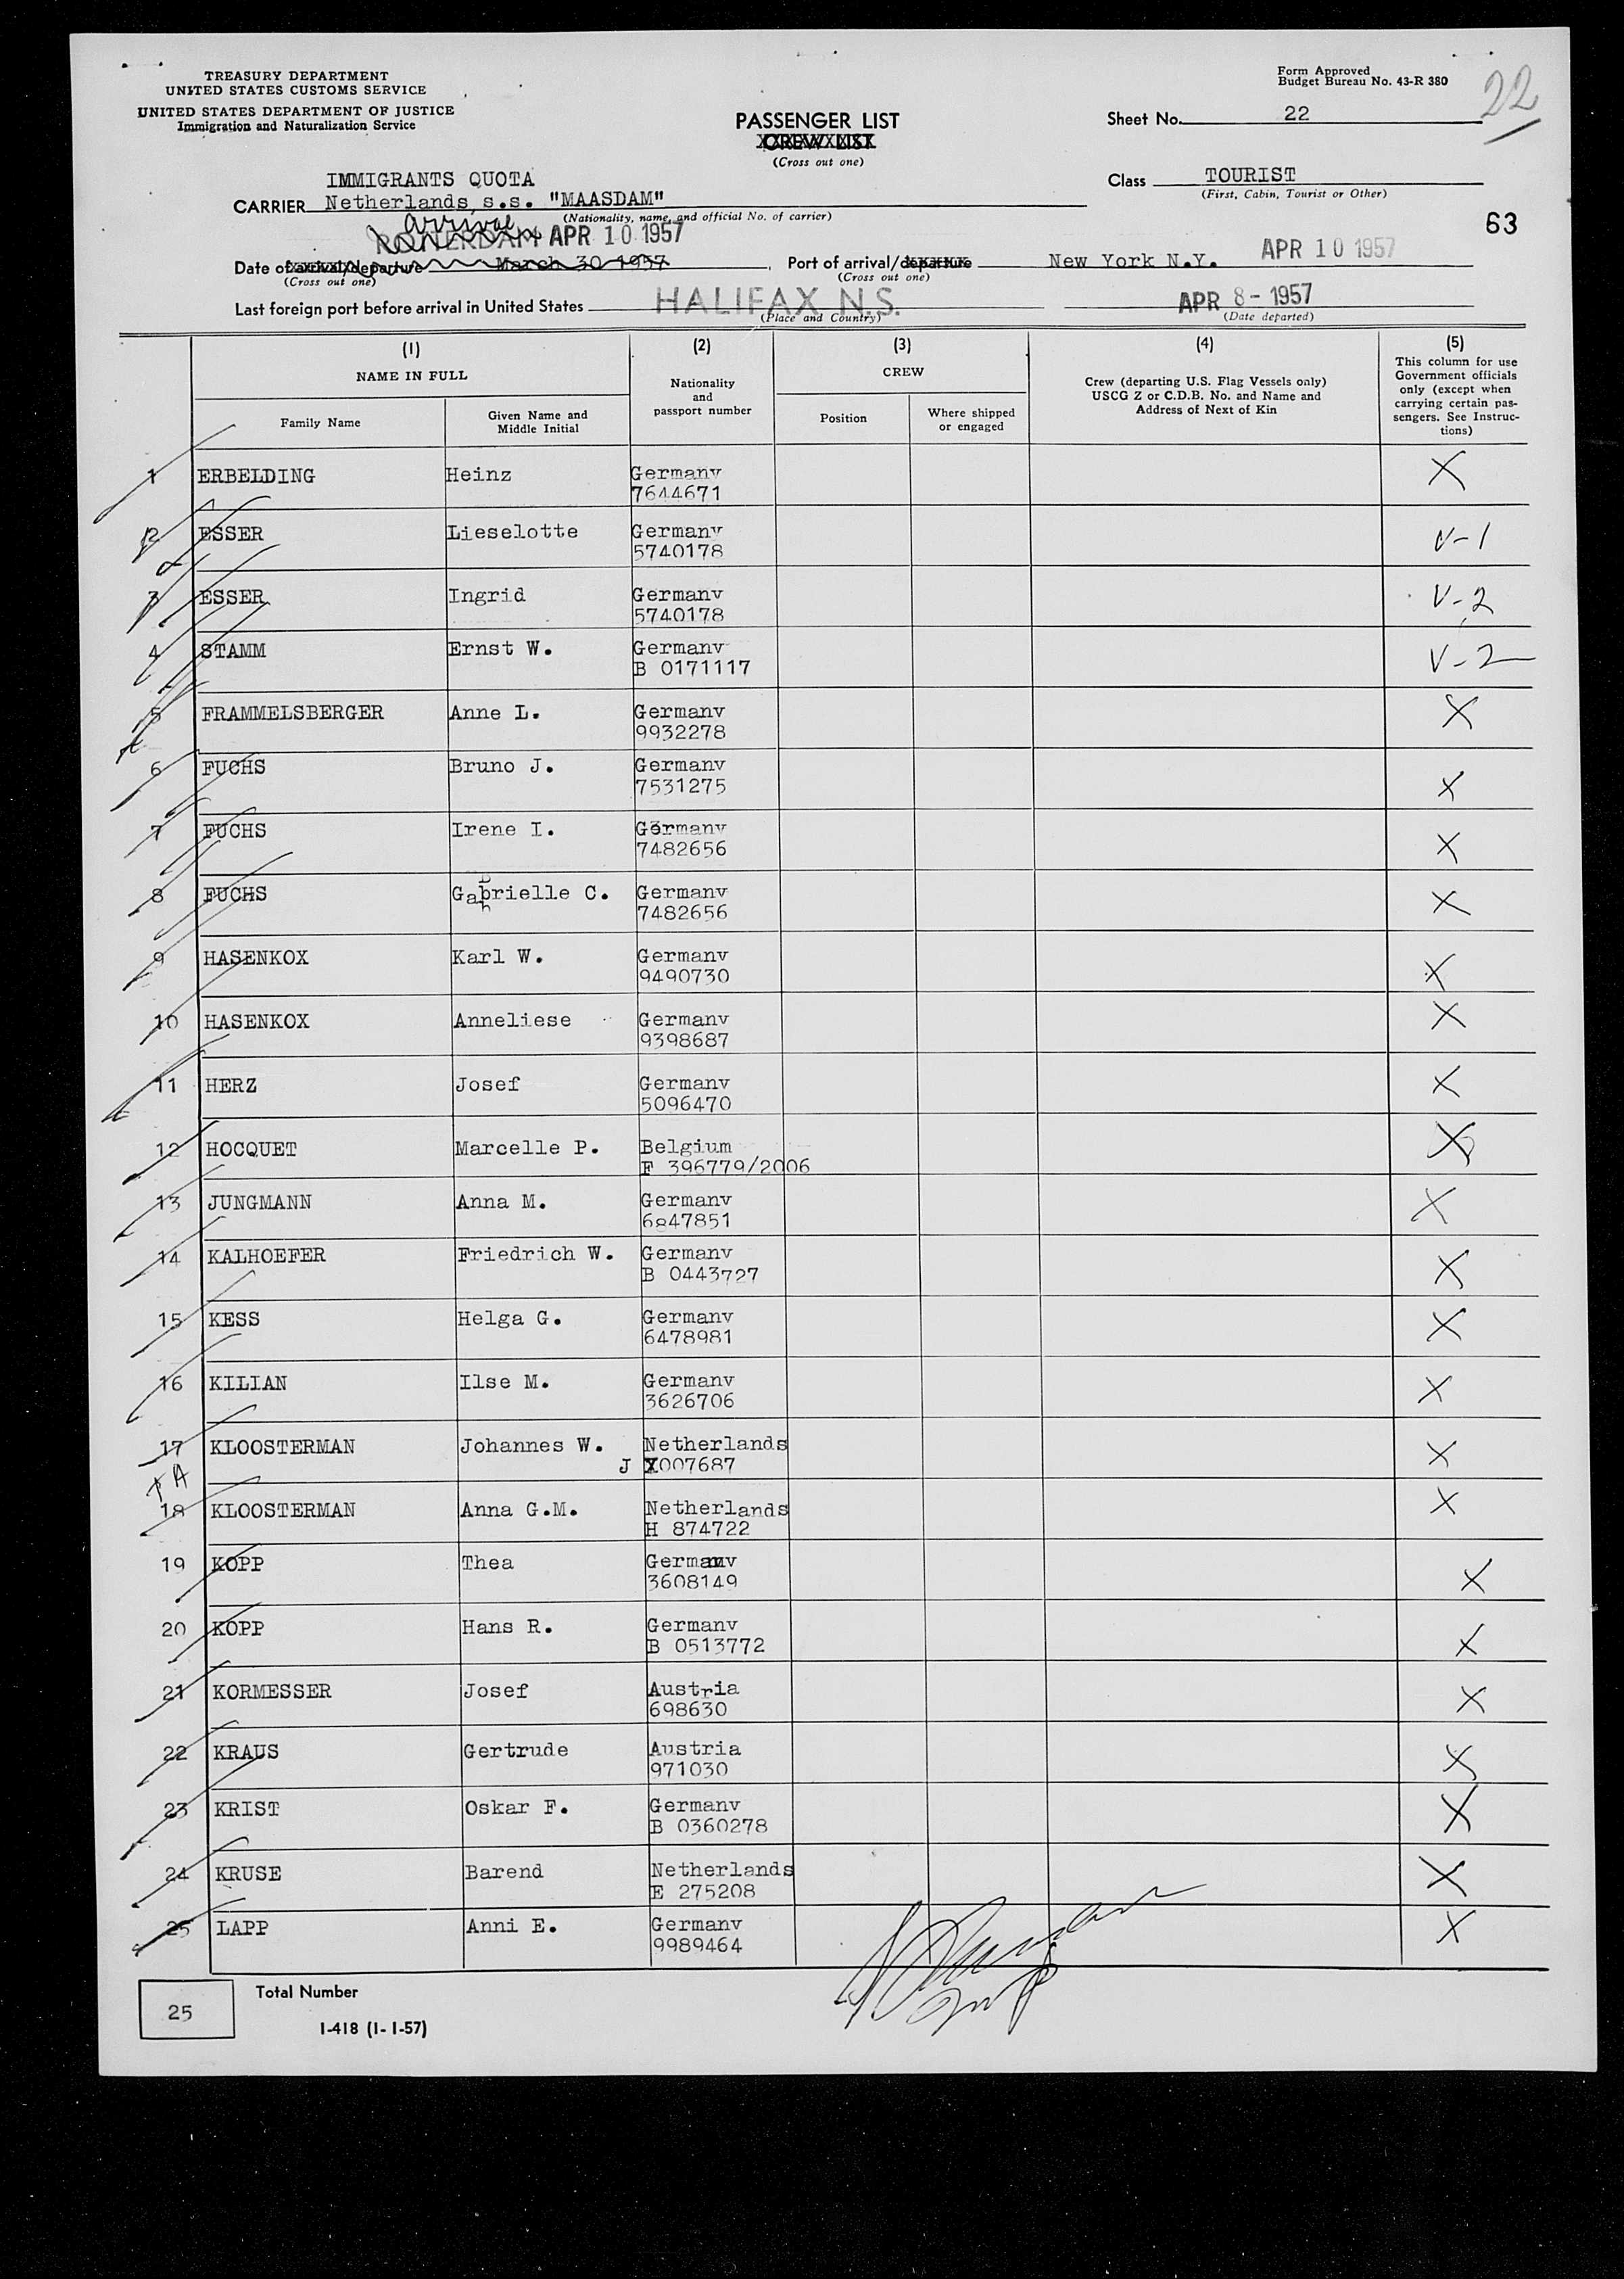 TREASURY DEPARTMENT
UNITED STATES CUSTOMS SERVICE
UNITED STATES DEPARTMENT OF JUSTICE
Immigration and Naturalization Service
Form Approved
Budget Bureau No. 43-R 380
22
PASSENGER LIST
CREW LIST
(Cross out one)
Sheet No. 22
IMMIGRANTS QUOTA
CARRIER Netherlands s.s. "MAASDAM"
(Nationality, name, and official No. of carrier)
Class TOURIST
(First, Cabin, Tourist or Other)
63
arrival
ROTTERDAM APR 10 1957
Date of arrival/departure March 30 1957
(Cross out one)
Port of arrival/departure New York N.Y. APR 10 1957
(Cross out one)
Last foreign port before arrival in United States HALIFAX N.S. APR 8- 1957
(Place and Country) (Date departed)
(1) (2) (3) (4) (5)
NAME IN FULL
Family Name
Given Name and
Middle Initial
Nationality
and
passport number
CREW
Position
Where shipped
or engaged
Crew (departing U.S. Flag Vessels only)
USCG Z or C.D.B. No. and Name and
Address of Next of Kin
This column for use
Government officials
only (except when
carrying certain pas-
sengers. See Instruc-
tions)
1 ERBELDING Heinz Germany X
7644671
2 ESSER Lieselotte Germany V-1
5740178
3 ESSER Ingrid Germany V-2
5740178
4 STAMM Ernst W. Germany V-2
B 0171117
5 FRAMMELSBERGER Anne L. Germany X
9932278
6 FUCHS Bruno J. Germany X
7531275
7 FUCHS Irene I. Germany X
7482656
8 FUCHS Gabrielle C. Germany X
7482656
9 HASENKOX Karl W. Germany X
9490730
10 HASENKOX Anneliese Germany X
9398687
11 HERZ Josef Germany X
5096470
12 HOCQUET Marcelle P. Belgium X
F 396779/2006
13 JUNGMANN Anna M. Germany X
6847851
14 KALHOEFER Friedrich W. Germany X
B 0443727
15 KESS Helga G. Germany X
6478981
16 KILIAN Ilse M. Germany X
3626706
17 KLOOSTERMAN Johannes W. Netherlands X
J X007687
18 KLOOSTERMAN Anna G.M. Netherlands X
H 874722
19 KOPP Thea Germany X
3608149
20 KOPP Hans R. Germany X
B 0513772
21 KORMESSER Josef Austria X
698630
22 KRAUS Gertrude Austria X
971030
23 KRIST Oskar F. Germany X
B 0360278
24 KRUSE Barend Netherlands X
E 275208
25 LAPP Anni E. Germany X
9989464
25
Total Number
I-418 (1-1-57)